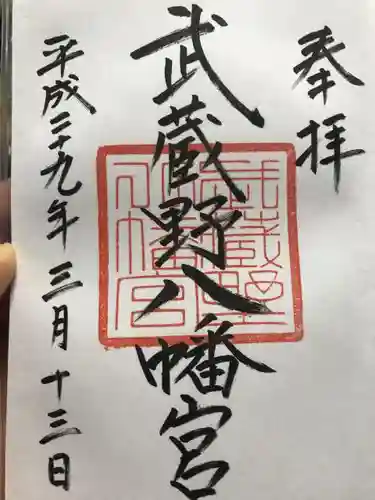 奉拝
武蔵野八幡宮
武蔵野八幡宮
平成二十九年三月十三日